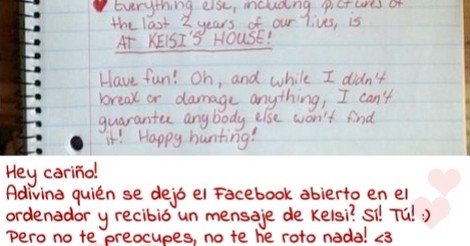 Everything else, including pictures of
the last 2 years of our lives, is
AT KELSI'S HOUSE!
Have fun! Oh, and while I didn't
break or damage anything, I can't
guarantee anybody else won't find
it! Happy hunting!
Hey cariño!
Adivina quién se dejó el Facebook abierto en el
ordenador y recibió un mensaje de Kelsi? Sí! Tú! :)
Pero no te preocupes, no te he roto nada! <3